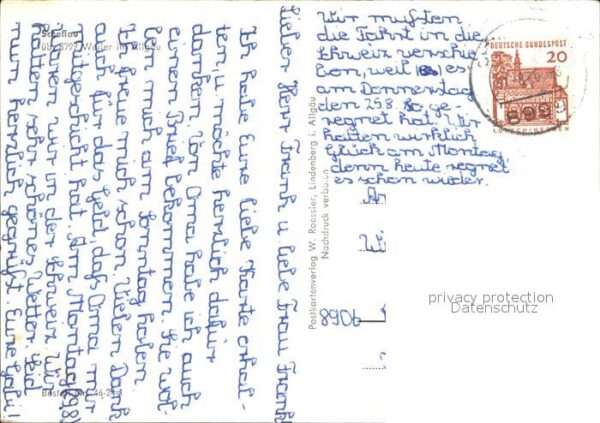 Scheffau
üb. 8999 Weiler im Allgäu
Lieber Herr Frank u. liebe Frau Frank!
Ich habe Eure liebe Karte erhal-
ten, u. möchte herzlich dafür
danken. Von Oma habe ich auch
einen Brief bekommen. Sie wol-
len mich am Sonntag holen
Ich freue mich schon. Vielen Dank
auch für das Geld, daß Oma mir
mitgeschickt hat. Am Montag
waren wir in der Schweiz. Wir
hatten sehr schönes Wetter. Seid
nun herzlich gegrüßt. Eure Gabi!
Wir mußten
die Fahrt in die
Schweiz verschie
ben, weil es
am Donnerstag
den 25.8. ge-
regnet hat. Wir
hatten wirklich
Glück am Montag,
denn heute regnet
es schon wieder.
Postkartenverlag W. Roessler, Lindenberg i. Allgäu
Nachdruck verboten
DEUTSCHE BUNDESPOST
20
LORSCH/HESSEN
8906
privacy protection
Datenschutz